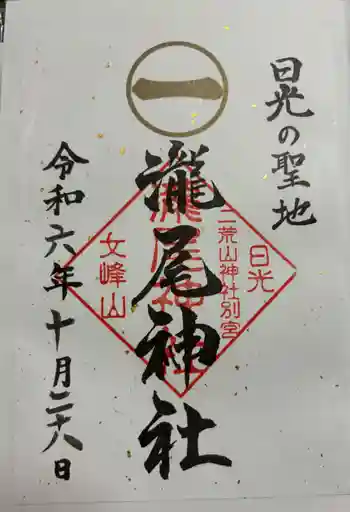 日光の聖地
一
瀧尾神社
日光
二荒山神社別宮
瀧尾神社
女峰山
令和六年十月二十八日